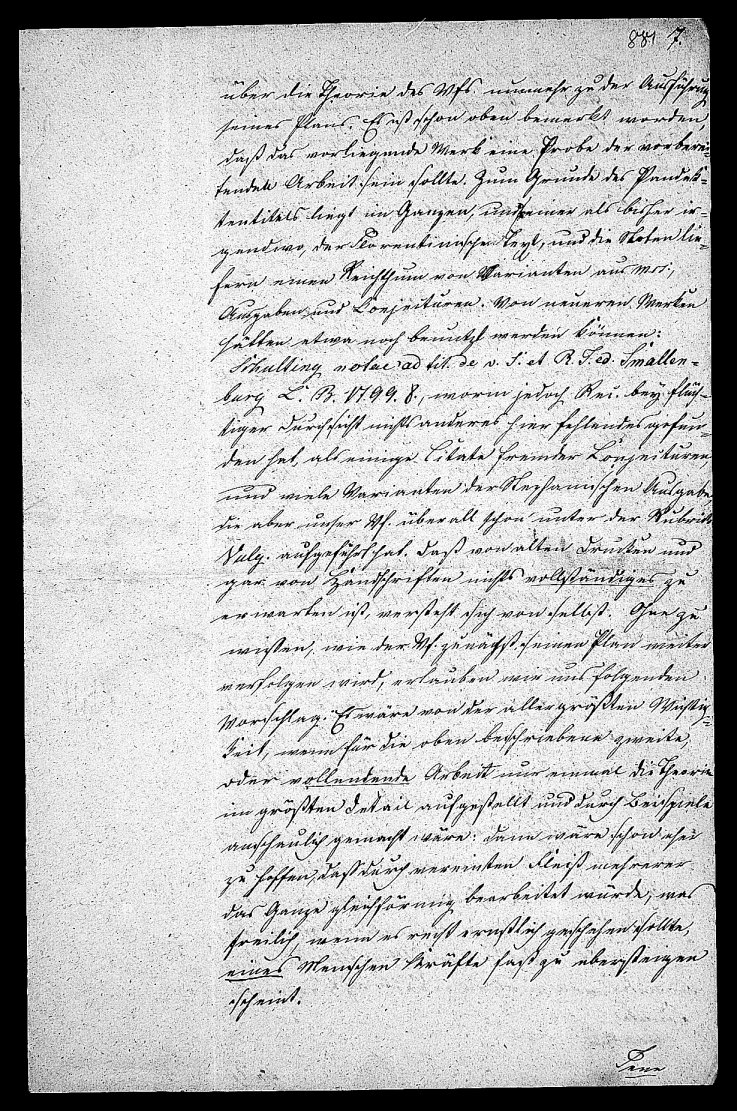 881 7.
über die Theorie des Vfs. nunmehr zu der Ausführung
seines Plans. Es ist schon oben bemerkt worden,
daß das vorliegende Werk eine Probe der vorberei-
tenden Arbeit sein sollte. Zum Grunde des Pandek-
tentitels liegt im Ganzen, und reiner als bisher ir-
gendwo, der Florentinische Text, und die Noten lie-
fern einen Reichthum von Varianten aus Mss.,
Ausgaben und Conjecturen. Von neueren Werken
hätten etwa noch benutzt werden können:
Schulting notae ad tit. de v. S. et R. J. ed. Smallen-
burg L. B. 1799. 8., worin jedoch Rec. bey flüch-
tiger Durchsicht nichts anderes hier fehlendes gefun-
den hat, als einige Citate fremder Conjecturen,
und viele Varianten der Stephanischen Ausgabe,
die aber unser Vf. überall schon unter der Rubrik
Vulg. aufgeführt hat. Daß von alten Drucken und
gar von Handschriften nichts vollständiges zu
erwarten ist, versteht sich von selbst. Ohne zu
wissen, wie der Vf. zunächst seinen Plan weiter
verfolgen wird, erlauben wir uns folgenden
Vorschlag. Es wäre von der allergrößten Wichtig-
keit, wenn für die oben beschriebene zweite,
oder vollendende Arbeit nur einmal die Theorie
im größten Detail aufgestellt und durch Beispiele
anschaulich gemacht wäre: dann wäre schon eher
zu hoffen, daß durch vereinten Fleiß mehrerer
das Ganze gleichförmig bearbeitet würde, was
freilich, wenn es recht ernstlich geschehen sollte,
eines Menschen Kräfte fast zu übersteigen
scheint.
Jene